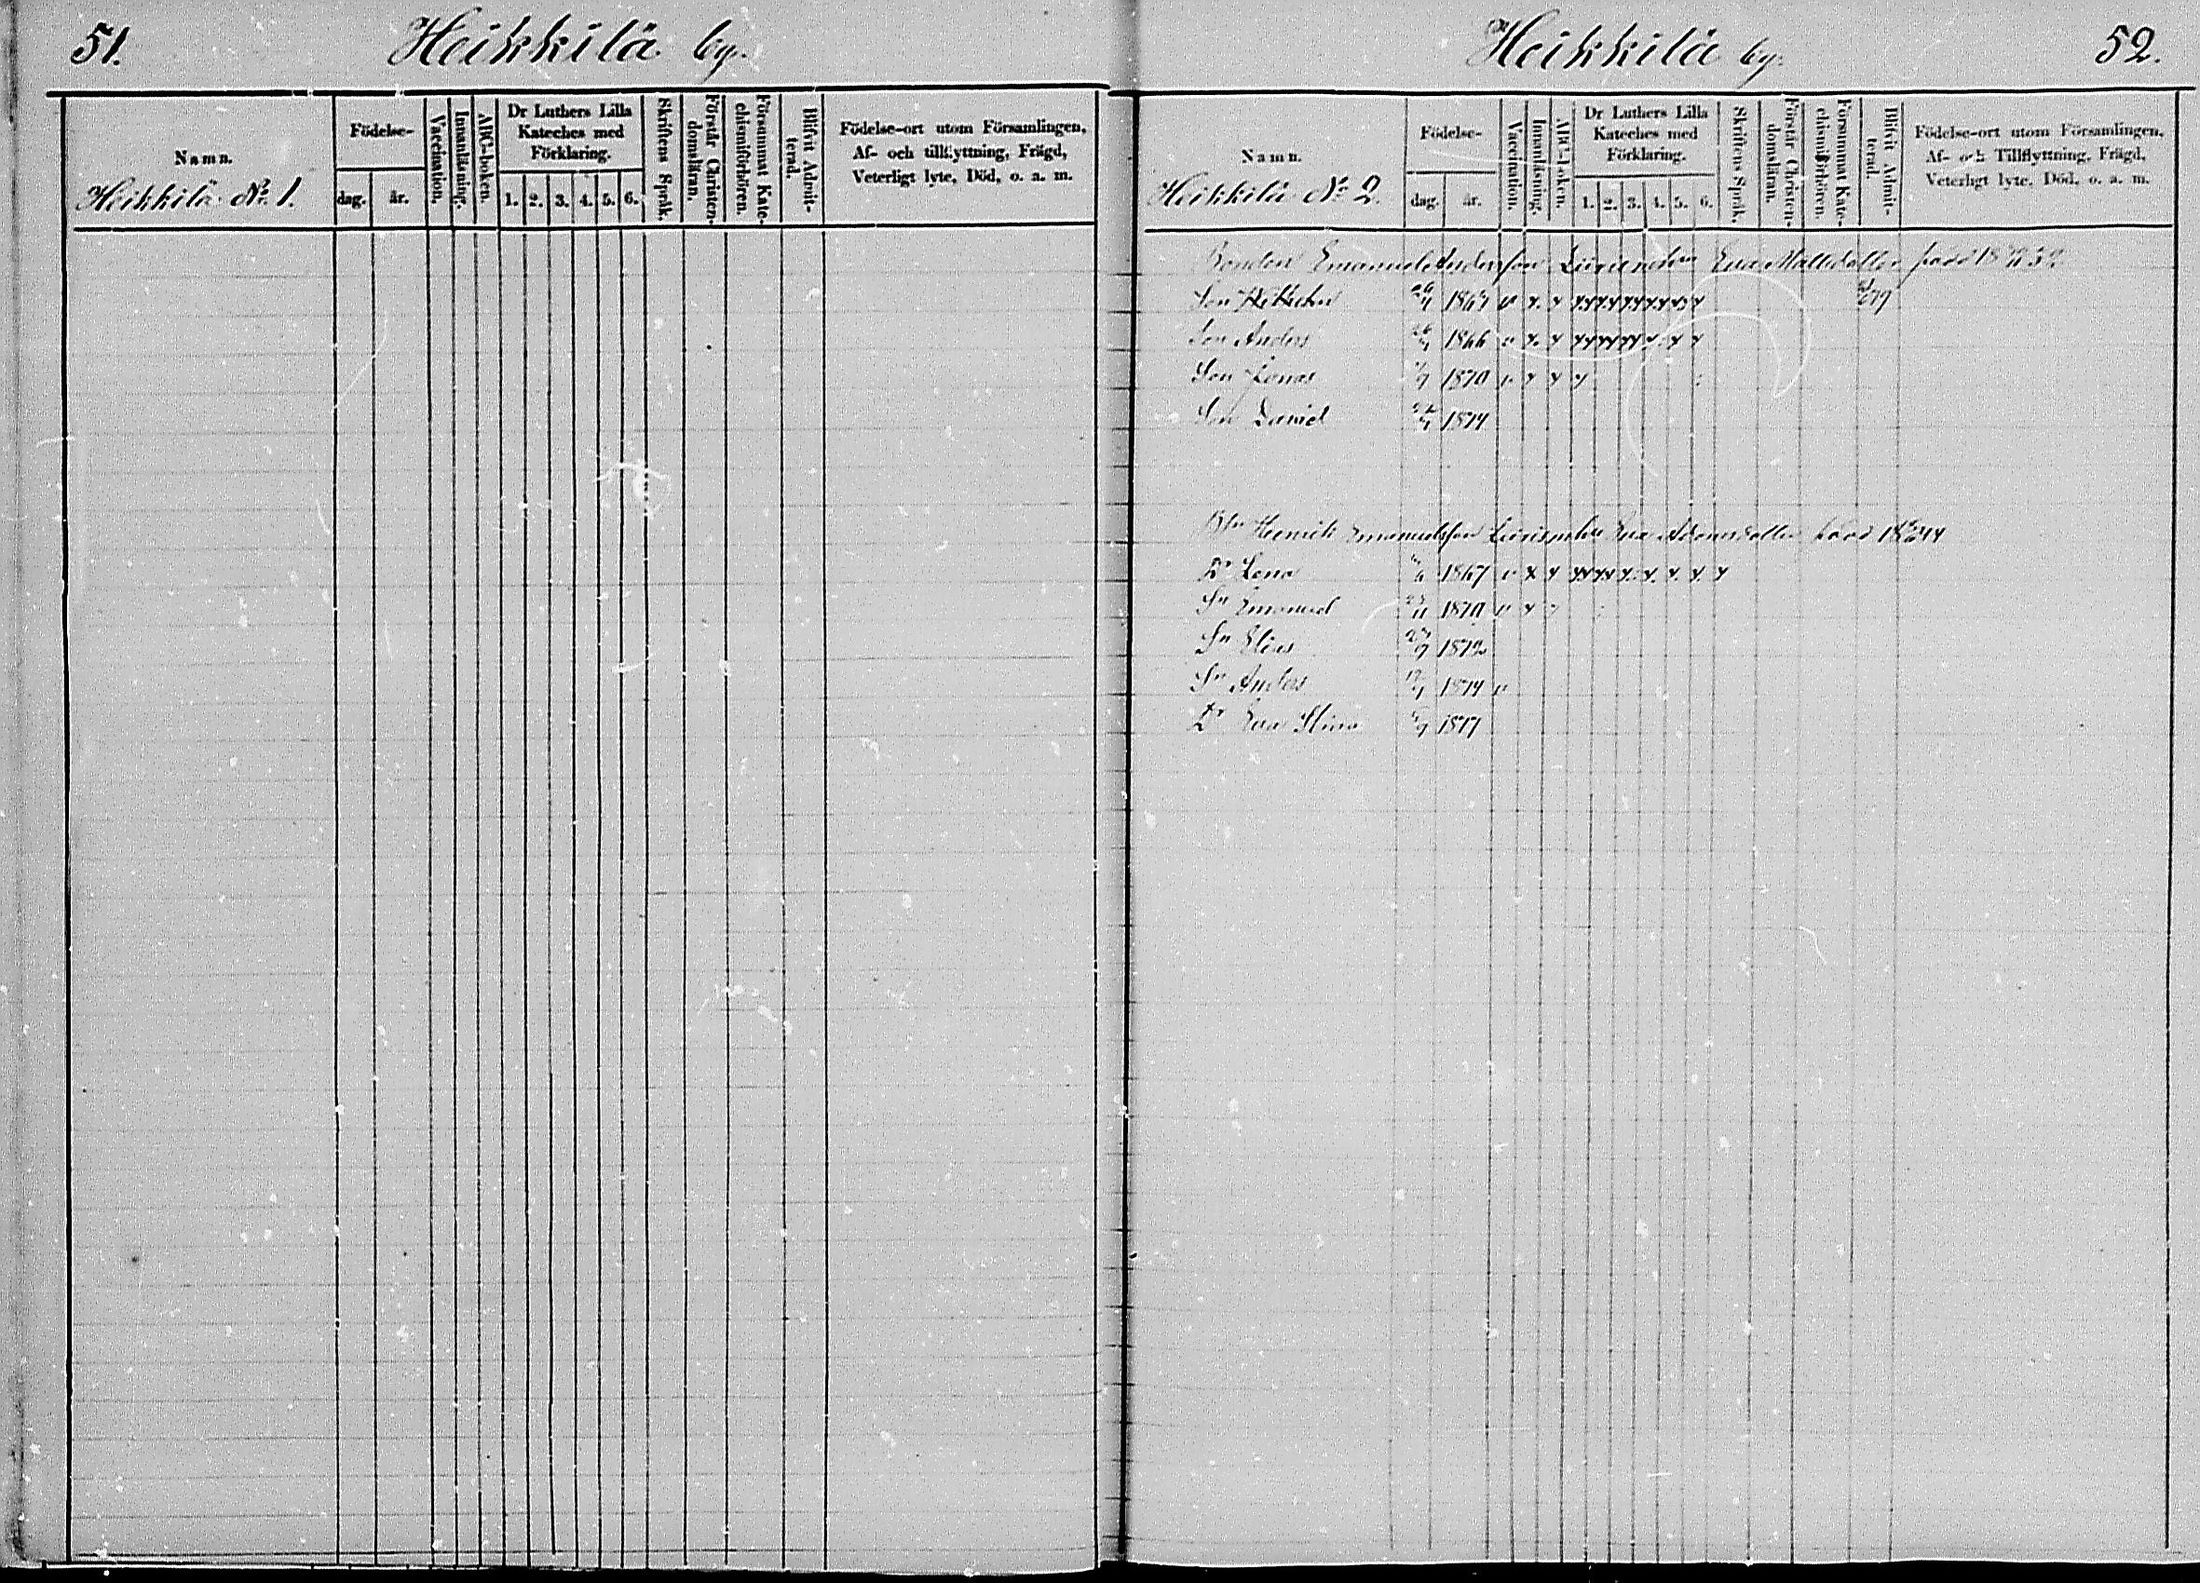 51.
Heikkilä by.
Namn.
Heikkilä No 1.
Födelse-
dag.
år.
Vaccination.
Innanläsning.
ABC-boken.
Dr Luthers Lilla
Kateches med
Förklaring.
1. 2. 3. 4. 5. 6.
Skriftens Språk.
Förstår Christen-
domsläran.
Försummat Kate-
chismiförhören.
Blifvit Admit-
terad.
Födelse-ort utom Församlingen,
Af- och tillflyttning, Frägd,
Veterligt lyte, Död, o. a. m.
Heikkilä by.
52.
Namn.
Heikkilä No 2.
Födelse-
dag.
år.
Vaccination.
Innanläsning.
ABC-boken.
Dr Luthers Lilla
Kateches med
Förklaring.
1. 2. 3. 4. 5. 6.
Skriftens Språk.
Förstår Christen-
domsläran.
Försummat Kate-
chismiförhören.
Blifvit Admit-
terad.
Födelse-ort utom Församlingen,
Af- och Tillflyttning, Frägd,
Veterligt lyte, Död, o. a. m.
Bonden Emanuel Andersson Eva Mattsdotter
Son
Son Anders 1866
Son Jonas 1870
Son Daniel 1874
Henrik Emanuelsson
Dr Lena 1867
Sn Emanuel 1870
Sn Elias 1872
Sn Anders 1874
Dr Eva Stina 1877